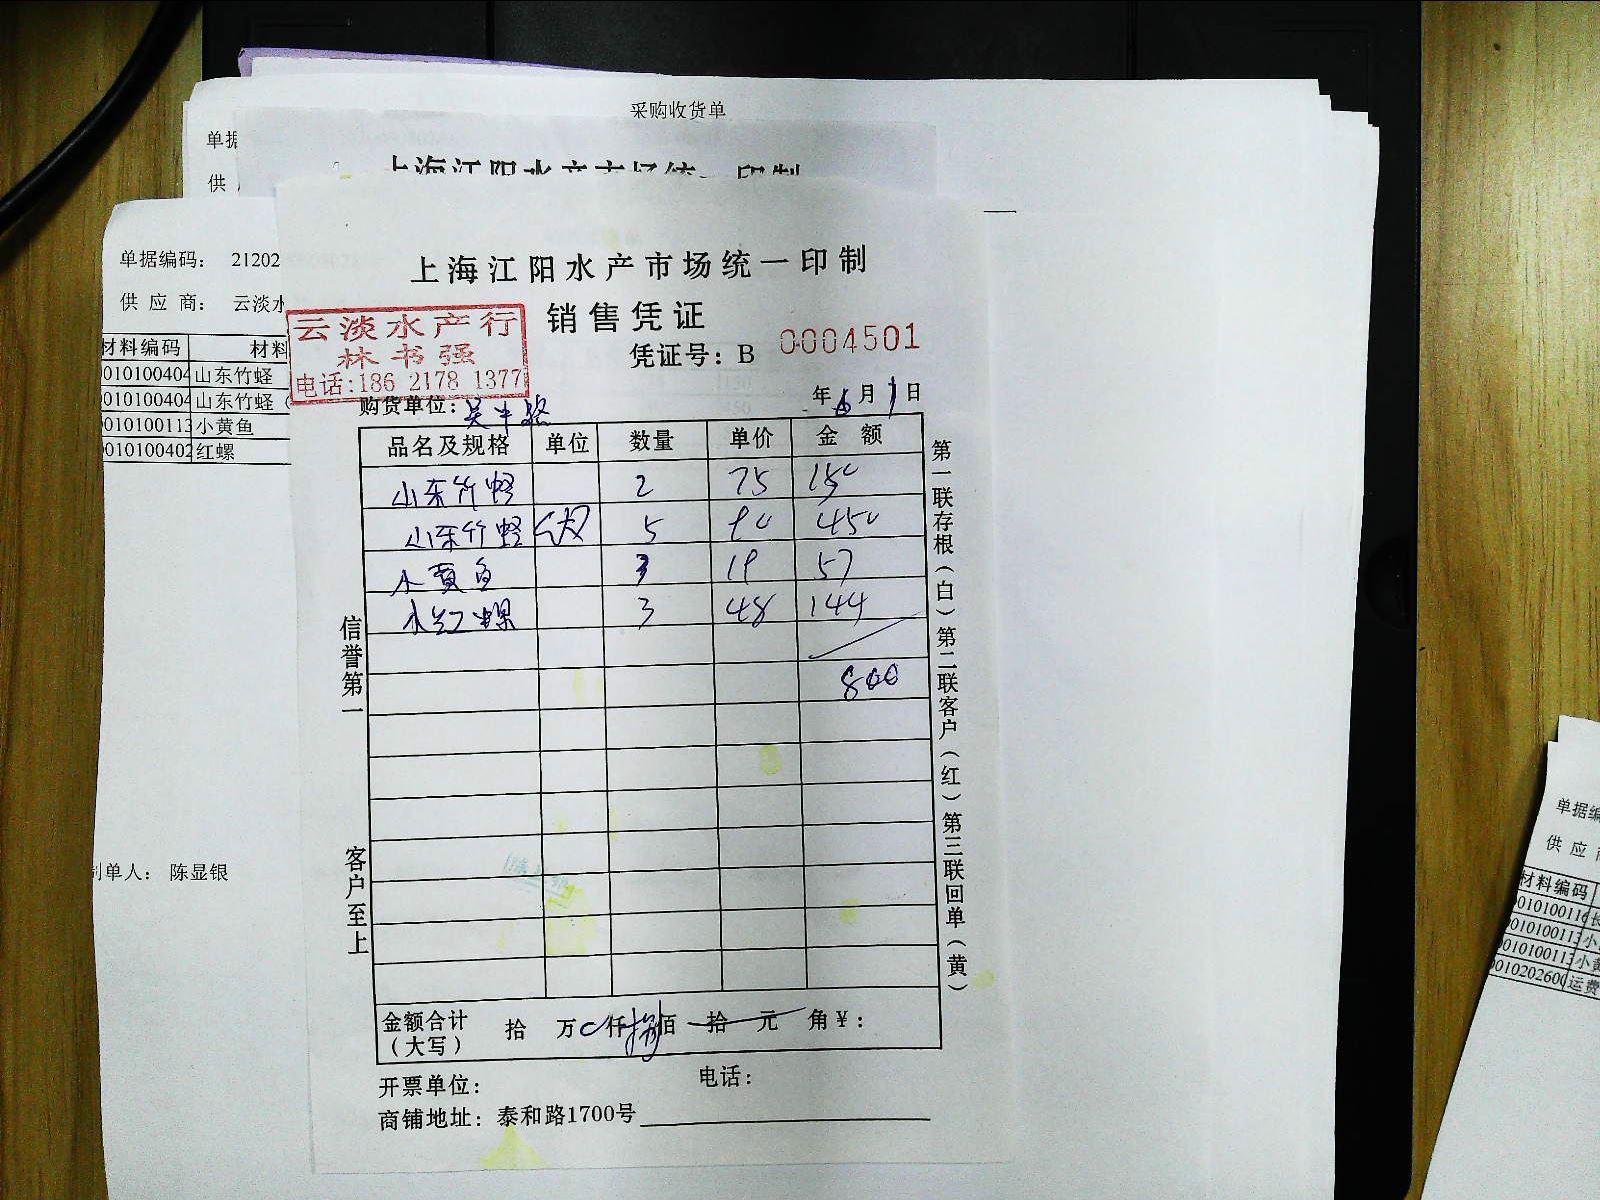 采购收货单
单据
供
上海江阳水产市场统一印制
单据编码： 21202
供 应 商： 云淡水
材料编码 材料
0010100404 山东竹蛏
0010100404 山东竹蛏（
0010100113 小黄鱼
0010100402 红螺
制单人： 陈显银
上海江阳水产市场统一印制
销售凭证
云淡水产行
林书强
电话:186 2178 1377
凭证号：B 0004501
购货单位: 吴中路
年 6 月 1 日
品名及规格 单位 数量 单价 金 额
山东竹蛏 2 75 150
山东竹蛏 (大) 5 90 450
小黄鱼 3 19 57
小红螺 3 48 144
800
信誉第一
客户至上
第一联存根（白）第二联客户（红）第三联回单（黄）
金额合计（大写） 拾 万 0 仟 捌 佰 拾 元 角¥：
开票单位: 电话:
商铺地址: 泰和路1700号
单据编
供 应
材料编码
0010100116 长
0010100113 小
0010100113 小黄
0010202600 运费